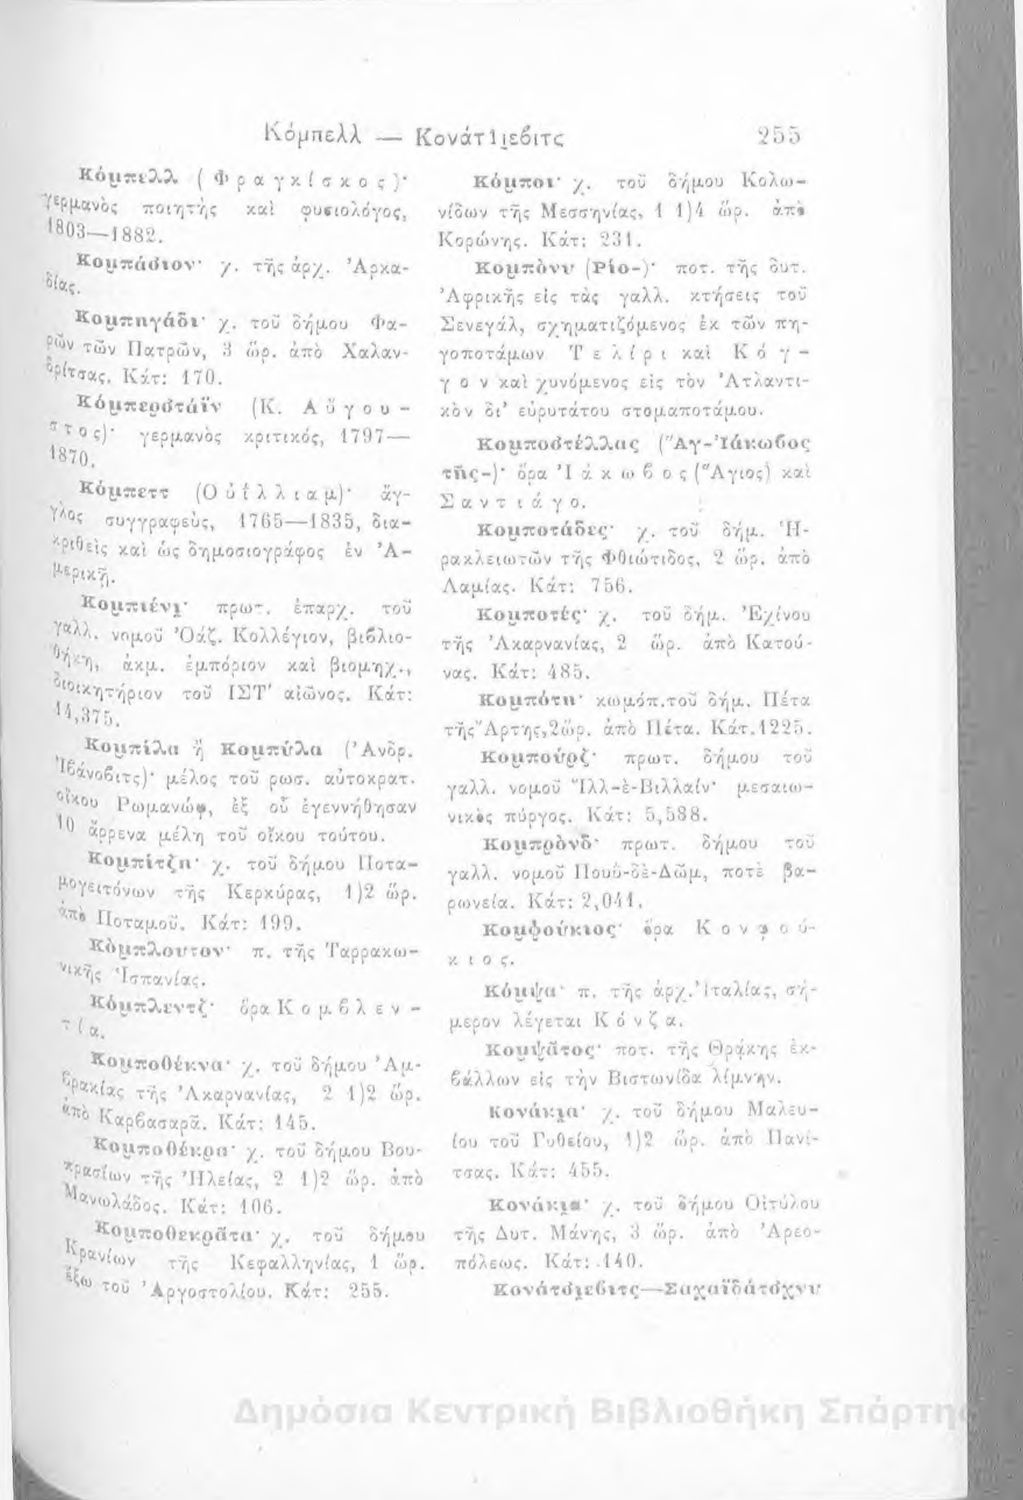 Κόμπελλ — Κονάτσιεβιτς 255
Κόμπελλ (Φραγκίσκος)·
γερμανὸς ποιητὴς καὶ φυσιολόγος,
1803—1882.
Κομπάσιον· χ. τῆς ἀρχ. Ἀρκα-
δίας.
Κομπηγάδι· χ. τοῦ δήμου Φα-
ρῶν τῶν Πατρῶν, 3 ὡρ. ἀπὸ Χαλαν-
δρίτσας. Κάτ: 170.
Κόμπερστάϊν (Κ. Αὔγου-
στος)· γερμανὸς κριτικός, 1797—
1870.
Κόμπεττ (Οὐΐλλιαμ)· ἄγ-
γλος συγγραφεὺς, 1765—1835, δια-
κριθεὶς καὶ ὡς δημοσιογράφος ἐν Ἀ-
μερικῇ.
Κομπιένῃ· πρωτ. ἐπαρχ. τοῦ
γαλλ. νομοῦ Ὀάζ. Κολλέγιον, βιβλιο-
θήκη, ἀκμ. ἐμπόριον καὶ βιομηχ.,
διοικητήριον τοῦ ΙΣΤ' αἰῶνος. Κάτ:
14,375.
Κομπίλα ἢ Κομπύλα (Ἀνδρ.
Ἰβάνοβιτς)· μέλος τοῦ ρωσ. αὐτοκρατ.
οἴκου Ρωμανώφ, ἐξ οὗ ἐγεννήθησαν
10 ἄρρενα μέλη τοῦ οἴκου τούτου.
Κομπίτζη· χ. τοῦ δήμου Ποτα-
μογειτόνων τῆς Κερκύρας, 1)2 ὡρ.
ἀπὸ Ποταμοῦ. Κάτ: 199.
Κόμπλουτον· π. τῆς Ταρρακω-
νικῆς Ἱσπανίας.
Κόμπλεντζ· ὅρα Κομβλεν-
τία.
Κομποθέκνα· χ. τοῦ δήμου Ἀμ-
βρακίας τῆς Ἀκαρνανίας, 2 1)2 ὡρ.
ἀπὸ Καρβασαρᾶ. Κάτ: 145.
Κομποθέκρα· χ. τοῦ δήμου Βου-
πρασίων τῆς Ἠλείας, 2 1)2 ὡρ. ἀπὸ
Μανωλάδος. Κάτ: 106.
Κομποθεκράτα· χ. τοῦ δήμου
Κρανίων τῆς Κεφαλληνίας, 1 ὡρ.
ἔξω τοῦ Ἀργοστολίου. Κάτ: 255.
Κόμποι· χ. τοῦ δήμου Κολω-
νίδων τῆς Μεσσηνίας, 1 1)4 ὡρ. ἀπὸ
Κορώνης. Κάτ: 231.
Κομπόνν (Ρίο-)· ποτ. τῆς δυτ.
Ἀφρικῆς εἰς τὰς γαλλ. κτήσεις τοῦ
Σενεγάλ, σχηματιζόμενος ἐκ τῶν πη-
γοποτάμων Τελίρι καὶ Κόγ-
γον καὶ χυνόμενος εἰς τὸν Ἀτλαντι-
κὸν δι' εὐρυτάτου στομαποτάμου.
Κομποστέλλας (Ἅγ-Ἰάκωβος
τῆς-)· ὅρα Ἰάκωβος (Ἅγιος) καὶ
Σαντιάγο.
Κομποτάδες· χ. τοῦ δήμ. Ἡ-
ρακλειωτῶν τῆς Φθιώτιδος, 2 ὡρ. ἀπὸ
Λαμίας. Κάτ: 756.
Κομποτές· χ. τοῦ δήμ. Ἐχίνου
τῆς Ἀκαρνανίας, 2 ὡρ. ἀπὸ Κατού-
νας. Κάτ: 485.
Κομπότη· κωμόπ.τοῦ δήμ. Πέτα
τῆς Ἄρτης,2ὡρ. ἀπὸ Πέτα. Κάτ.1225.
Κομπούρζ· πρωτ. δήμου τοῦ
γαλλ. νομοῦ Ἲλλ-ὲ-Βιλλαίν· μεσαιω-
νικὸς πύργος. Κάτ: 5,588.
Κομπρὸνδ· πρωτ. δήμου τοῦ
γαλλ. νομοῦ Πουῦ-δὲ-Δῶμ, ποτὲ βα-
ρωνεία. Κάτ: 2,041.
Κομφούκιος· ὅρα Κονφού-
κιος.
Κόμψα· π. τῆς ἀρχ. Ἰταλίας, σή-
μερον λέγεται Κόνζα.
Κομψᾶτος· ποτ. τῆς Θρᾴκης ἐκ-
βάλλων εἰς τὴν Βιστωνίδα λίμνην.
Κονάκια· χ. τοῦ δήμου Μαλευ-
ίου τοῦ Γυθείου, 1)2 ὡρ. ἀπὸ Πανί-
τσας. Κάτ: 455.
Κονάκια· χ. τοῦ δήμου Οἰτύλου
τῆς Δυτ. Μάνης, 3 ὡρ. ἀπὸ Ἀρεο-
πόλεως. Κάτ: 140.
Κονάτσιεβιτς—Σαχαϊδάτσχνυ
Δημόσια Κεντρική Βιβλιοθήκη Σπάρτης